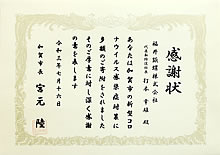 感謝状
福井鋲螺株式会社
代表取締役社長 打本 幸雄 殿
あなたは加賀市の新型コロ
ナウイルス感染症対策に
多額のご寄附をされました
そのご厚志に対し深く感謝
の意を表します
令和三年七月十六日
加賀市長 宮元 陸